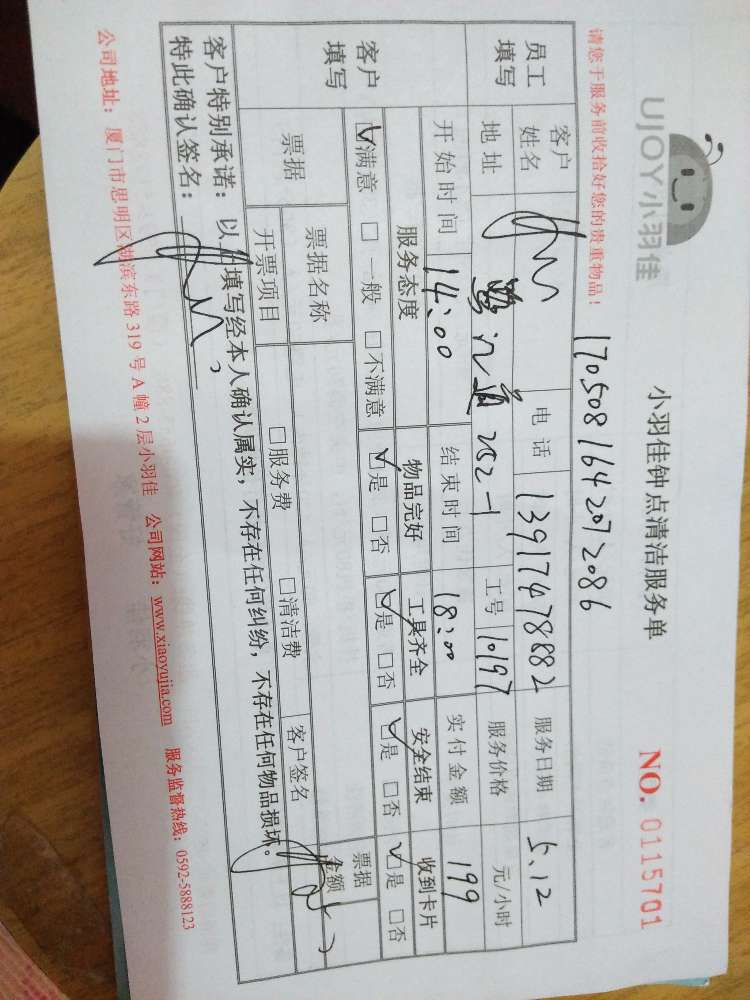 UJOY小羽佳
小羽佳钟点清洁服务单
NO. 0115701
请您于服务前收拾好您的贵重物品！
1705081642072086
员工填写 客户姓名 电话 13917478882 服务日期 5.12
地址 2021 工号 10197 服务价格 元/小时
开始时间 14:00 结束时间 18:00 实付金额 199
客户填写 服务态度 物品完好 工具齐全 安全结束 收到卡片
☑满意 □一般 □不满意 ☑是 □否 ☑是 □否 ☑是 □否 ☑是 □否
票据 票据名称 票据金额
开票项目 □服务费 □清洁费 客户签名
客户特别承诺：以上填写经本人确认属实，不存在任何纠纷，不存在任何物品损坏。
特此确认签名：
公司地址：厦门市思明区湖滨东路 319 号 A 幢 2 层小羽佳 公司网站：www.xiaoyujia.com 服务监督热线：0592-5888123